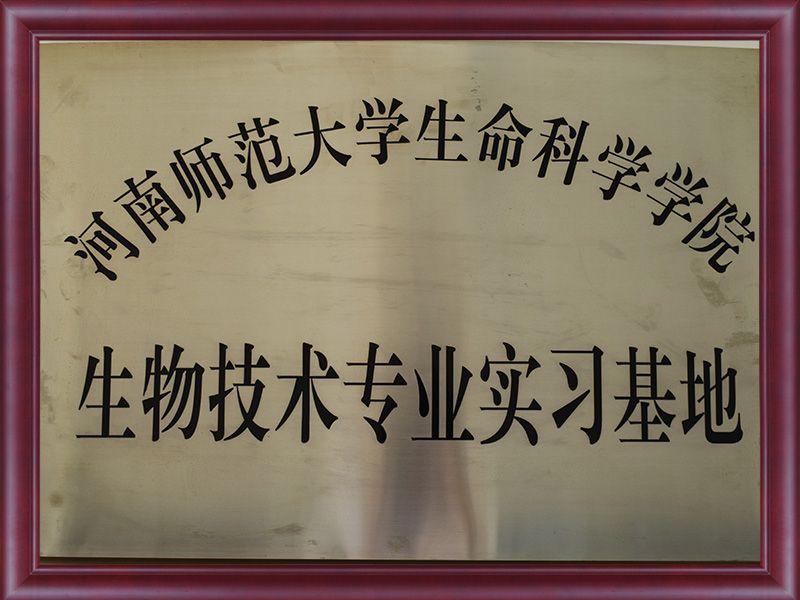 河南师范大学生命科学学院
生物技术专业实习基地